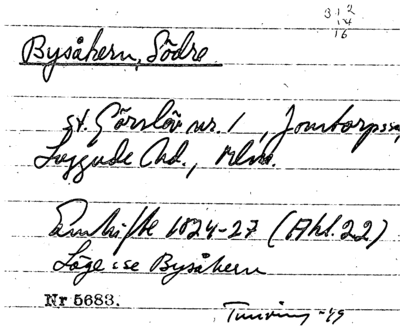 3 1 2
14
16
Bysåkern, Södre.
st. Görslöv nr. 1, Jonstorps
Luggude hd., Mlm.
Enskifte 1824-27 (Akt. 22)
Läge: se Bysåkern
Nr 5683.
-49